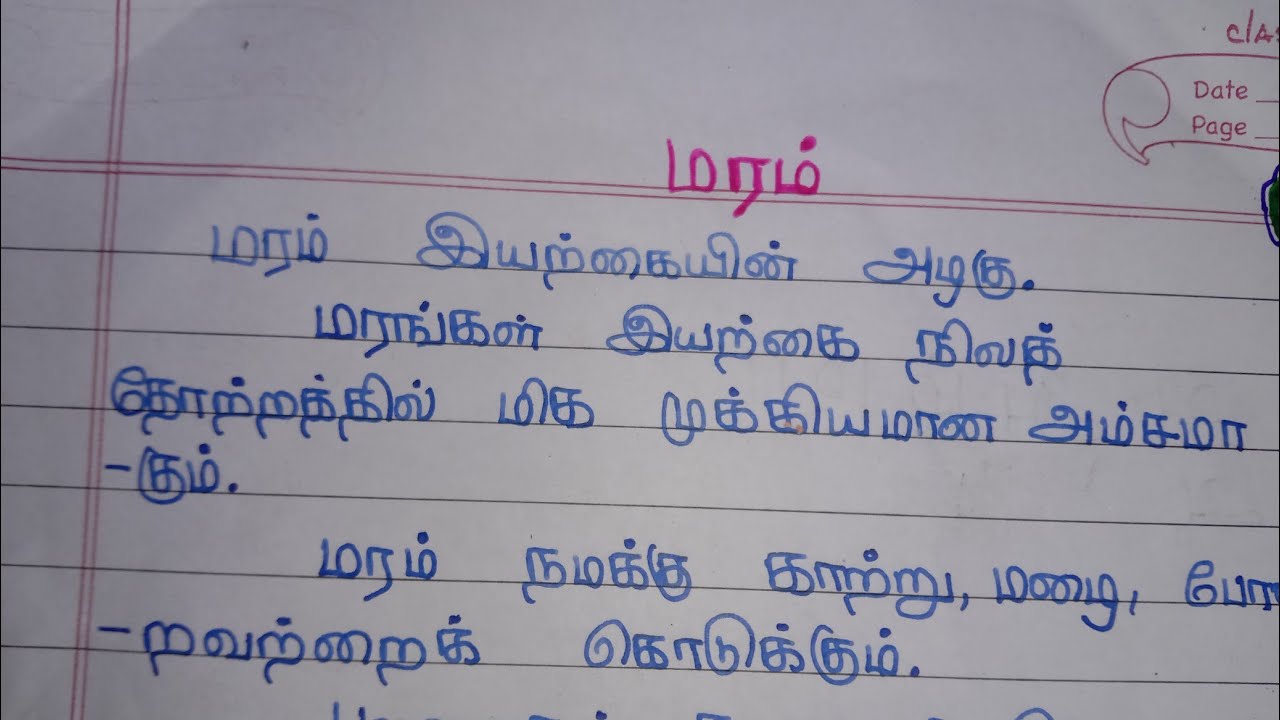 CLAS
Date
Page
மரம்
மரம் இயற்கையின் அழகு.
மரங்கள் இயற்கை நிலத்
தோற்றத்தில் மிக முக்கியமான அம்சமா
-கும்.
மரம் நமக்கு காற்று, மழை, போ
-றவற்றைக் கொடுக்கும்.